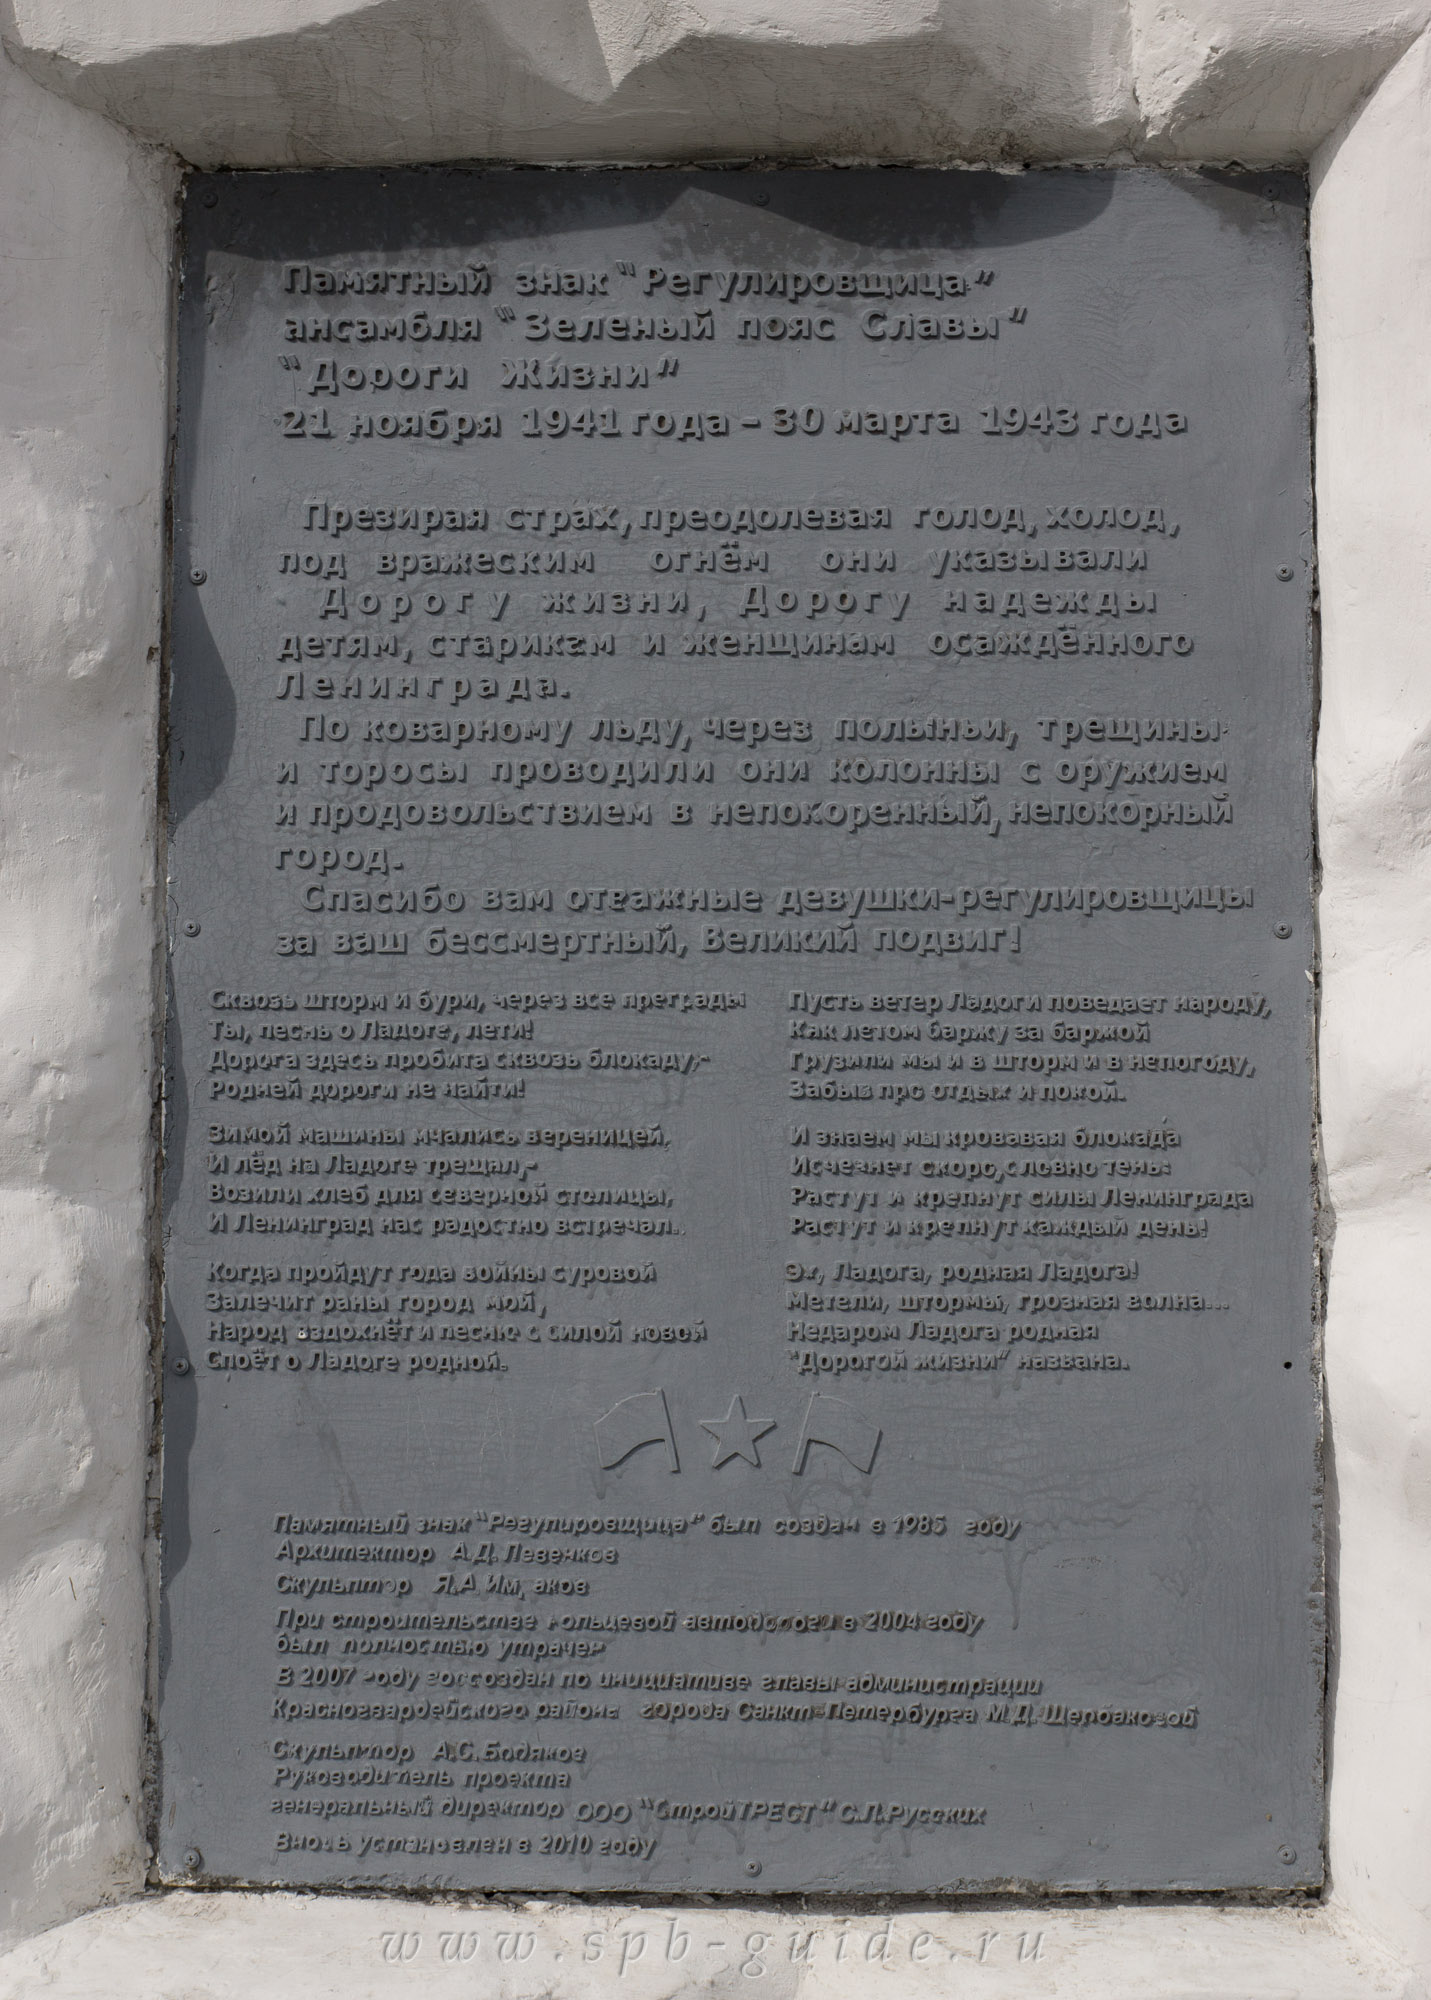 Памятный знак "Регулировщица"
ансамбля "Зеленый пояс Славы"
"Дороги Жизни"
21 ноября 1941 года - 30 марта 1943 года
Презирая страх, преодолевая голод, холод,
под вражеским огнём они указывали
Дорогу жизни, Дорогу надежды
детям, старикам и женщинам осаждённого
Ленинграда.
По коварному льду, через полыньи, трещины
и торосы проводили они колонны с оружием
и продовольствием в непокоренный, непокорный
город.
Спасибо вам отважные девушки-регулировщицы
за ваш бессмертный, Великий подвиг!
Сквозь шторм и бури, через все преграды
Ты, песнь о Ладоге, лети!
Дорога здесь пробита сквозь блокаду,-
Родней дороги не найти!
Зимой машины мчались вереницей,
И лёд на Ладоге трещал,-
Возили хлеб для северной столицы,
И Ленинград нас радостно встречал..
Когда пройдут года войны суровой
Залечит раны город мой,
Народ вздохнёт и песню с силой новой
Споёт о Ладоге родной.
Пусть ветер Ладоги поведает народу,
Как летом баржу за баржой
Грузили мы и в шторм и в непогоду,
Забыв про отдых и покой.
И знаем мы кровавая блокада
Исчезнет скоро, словно тень:
Растут и крепнут силы Ленинграда
Растут и крепнут каждый день!
Эх, Ладога, родная Ладога!
Метели, штормы, грозная волна...
Недаром Ладога родная
"Дорогой жизни" названа.
Памятный знак "Регулировщица" был создан в 1985 году
Архитектор А.Д. Левенков
Скульптор Я.А.
При строительстве кольцевой автодороги в 2004 году
был полностью утрачен
В 2007 году воссоздан по инициативе главы администрации
Красногвардейского района города Санкт-Петербурга М.Д. Щербаковой
Скульптор А.С. Бодяков
Руководитель проекта
генеральный директор ООО "СтройТРЕСТ" С.Л. Русских
Вновь установлен в 2010 году
www.spb-guide.ru